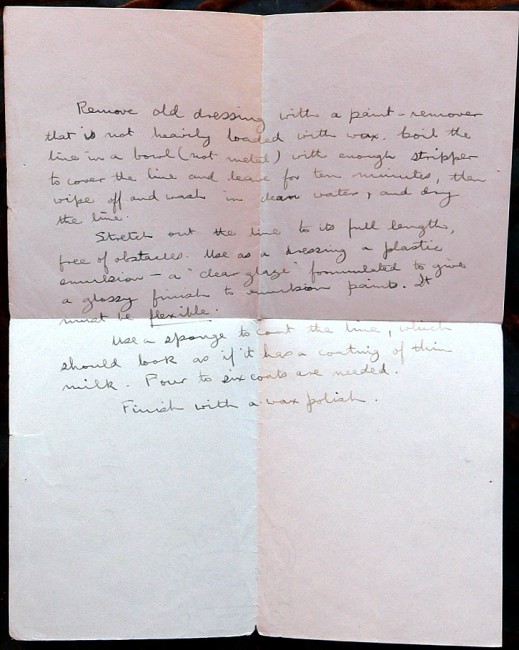 Remove old dressing with a paint-remover
that is not heavily loaded with wax. Coil the
line in a bowl (not metal) with enough stripper
to cover the line and leave for ten minutes, then
wipe off and wash in clean water, and dry
the line.
Stretch out the line to its full length,
free of obstacles. Use as a dressing a plastic
emulsion – a "clear glaze" formulated to give
a glossy finish to emulsion paint. It
must be flexible.
Use a sponge to coat the line, which
should look as if it has a coating of thin
milk. Four to six coats are needed.
Finish with a wax polish.